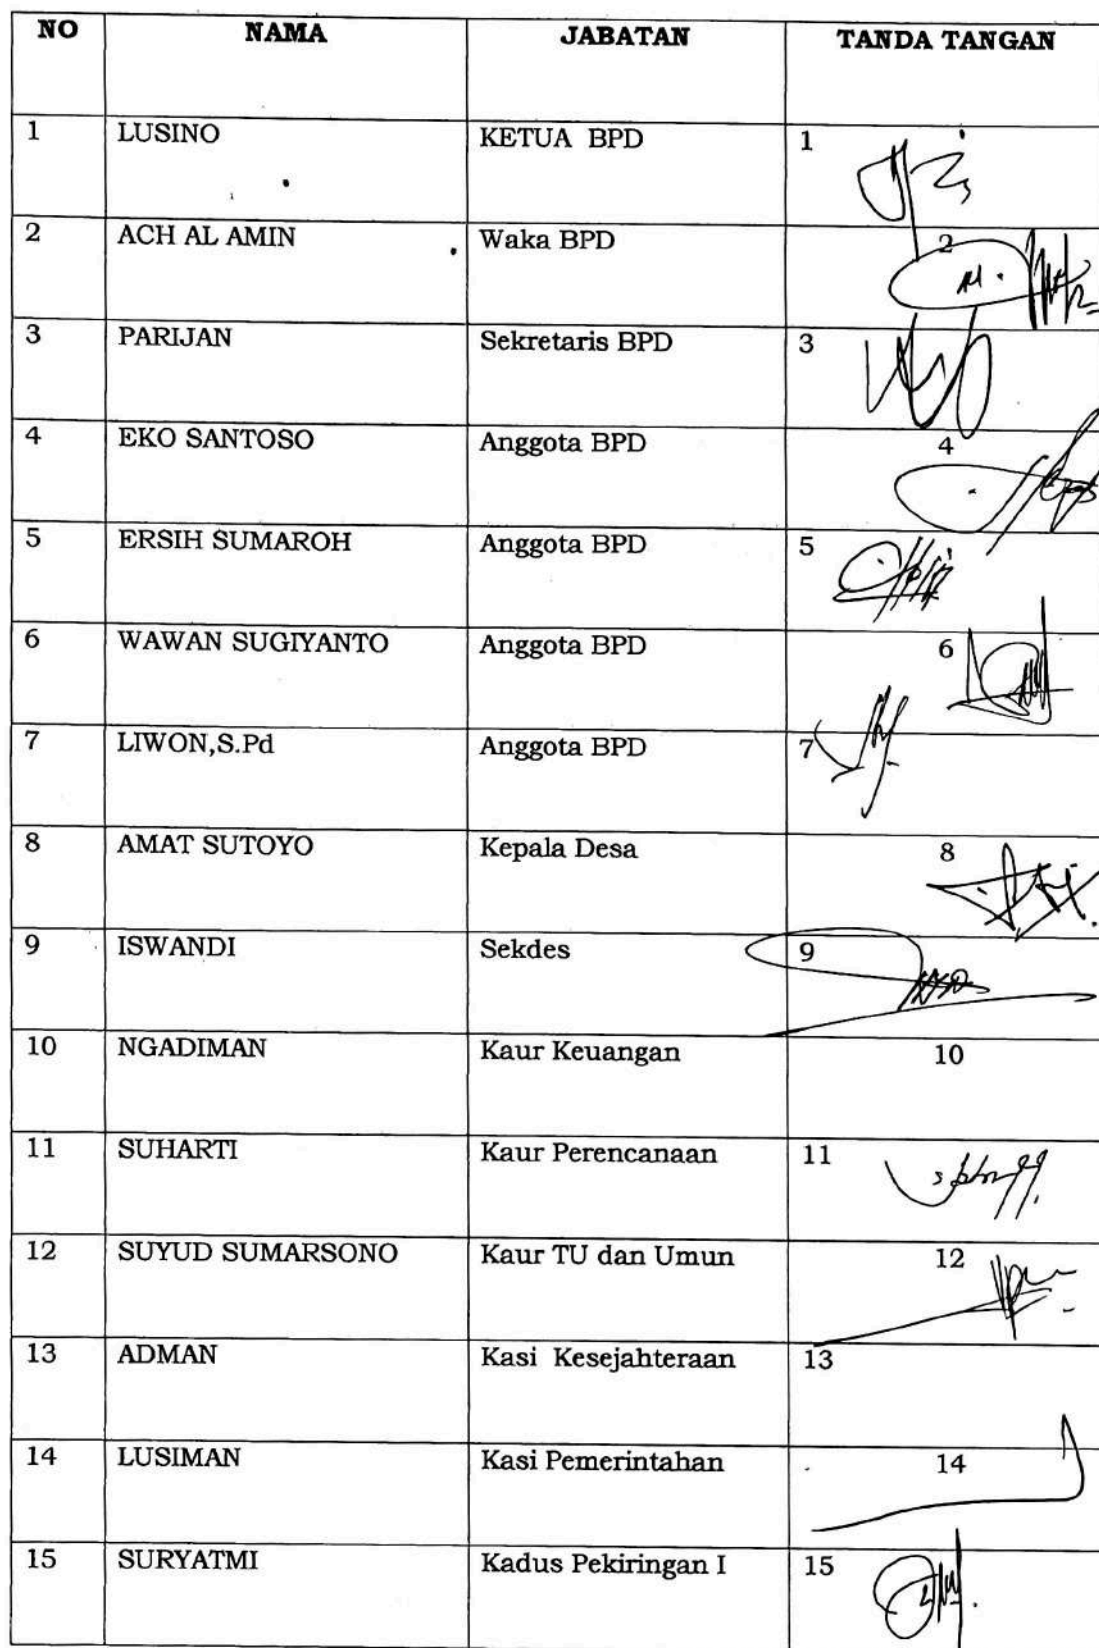 NO NAMA JABATAN TANDA TANGAN
1 LUSINO KETUA BPD 1
2 ACH AL AMIN Waka BPD 2
3 PARIJAN Sekretaris BPD 3
4 EKO SANTOSO Anggota BPD 4
5 ERSIH SUMAROH Anggota BPD 5
6 WAWAN SUGIYANTO Anggota BPD 6
7 LIWON,S.Pd Anggota BPD 7
8 AMAT SUTOYO Kepala Desa 8
9 ISWANDI Sekdes 9
10 NGADIMAN Kaur Keuangan 10
11 SUHARTI Kaur Perencanaan 11
12 SUYUD SUMARSONO Kaur TU dan Umun 12
13 ADMAN Kasi Kesejahteraan 13
14 LUSIMAN Kasi Pemerintahan 14
15 SURYATMI Kadus Pekiringan I 15